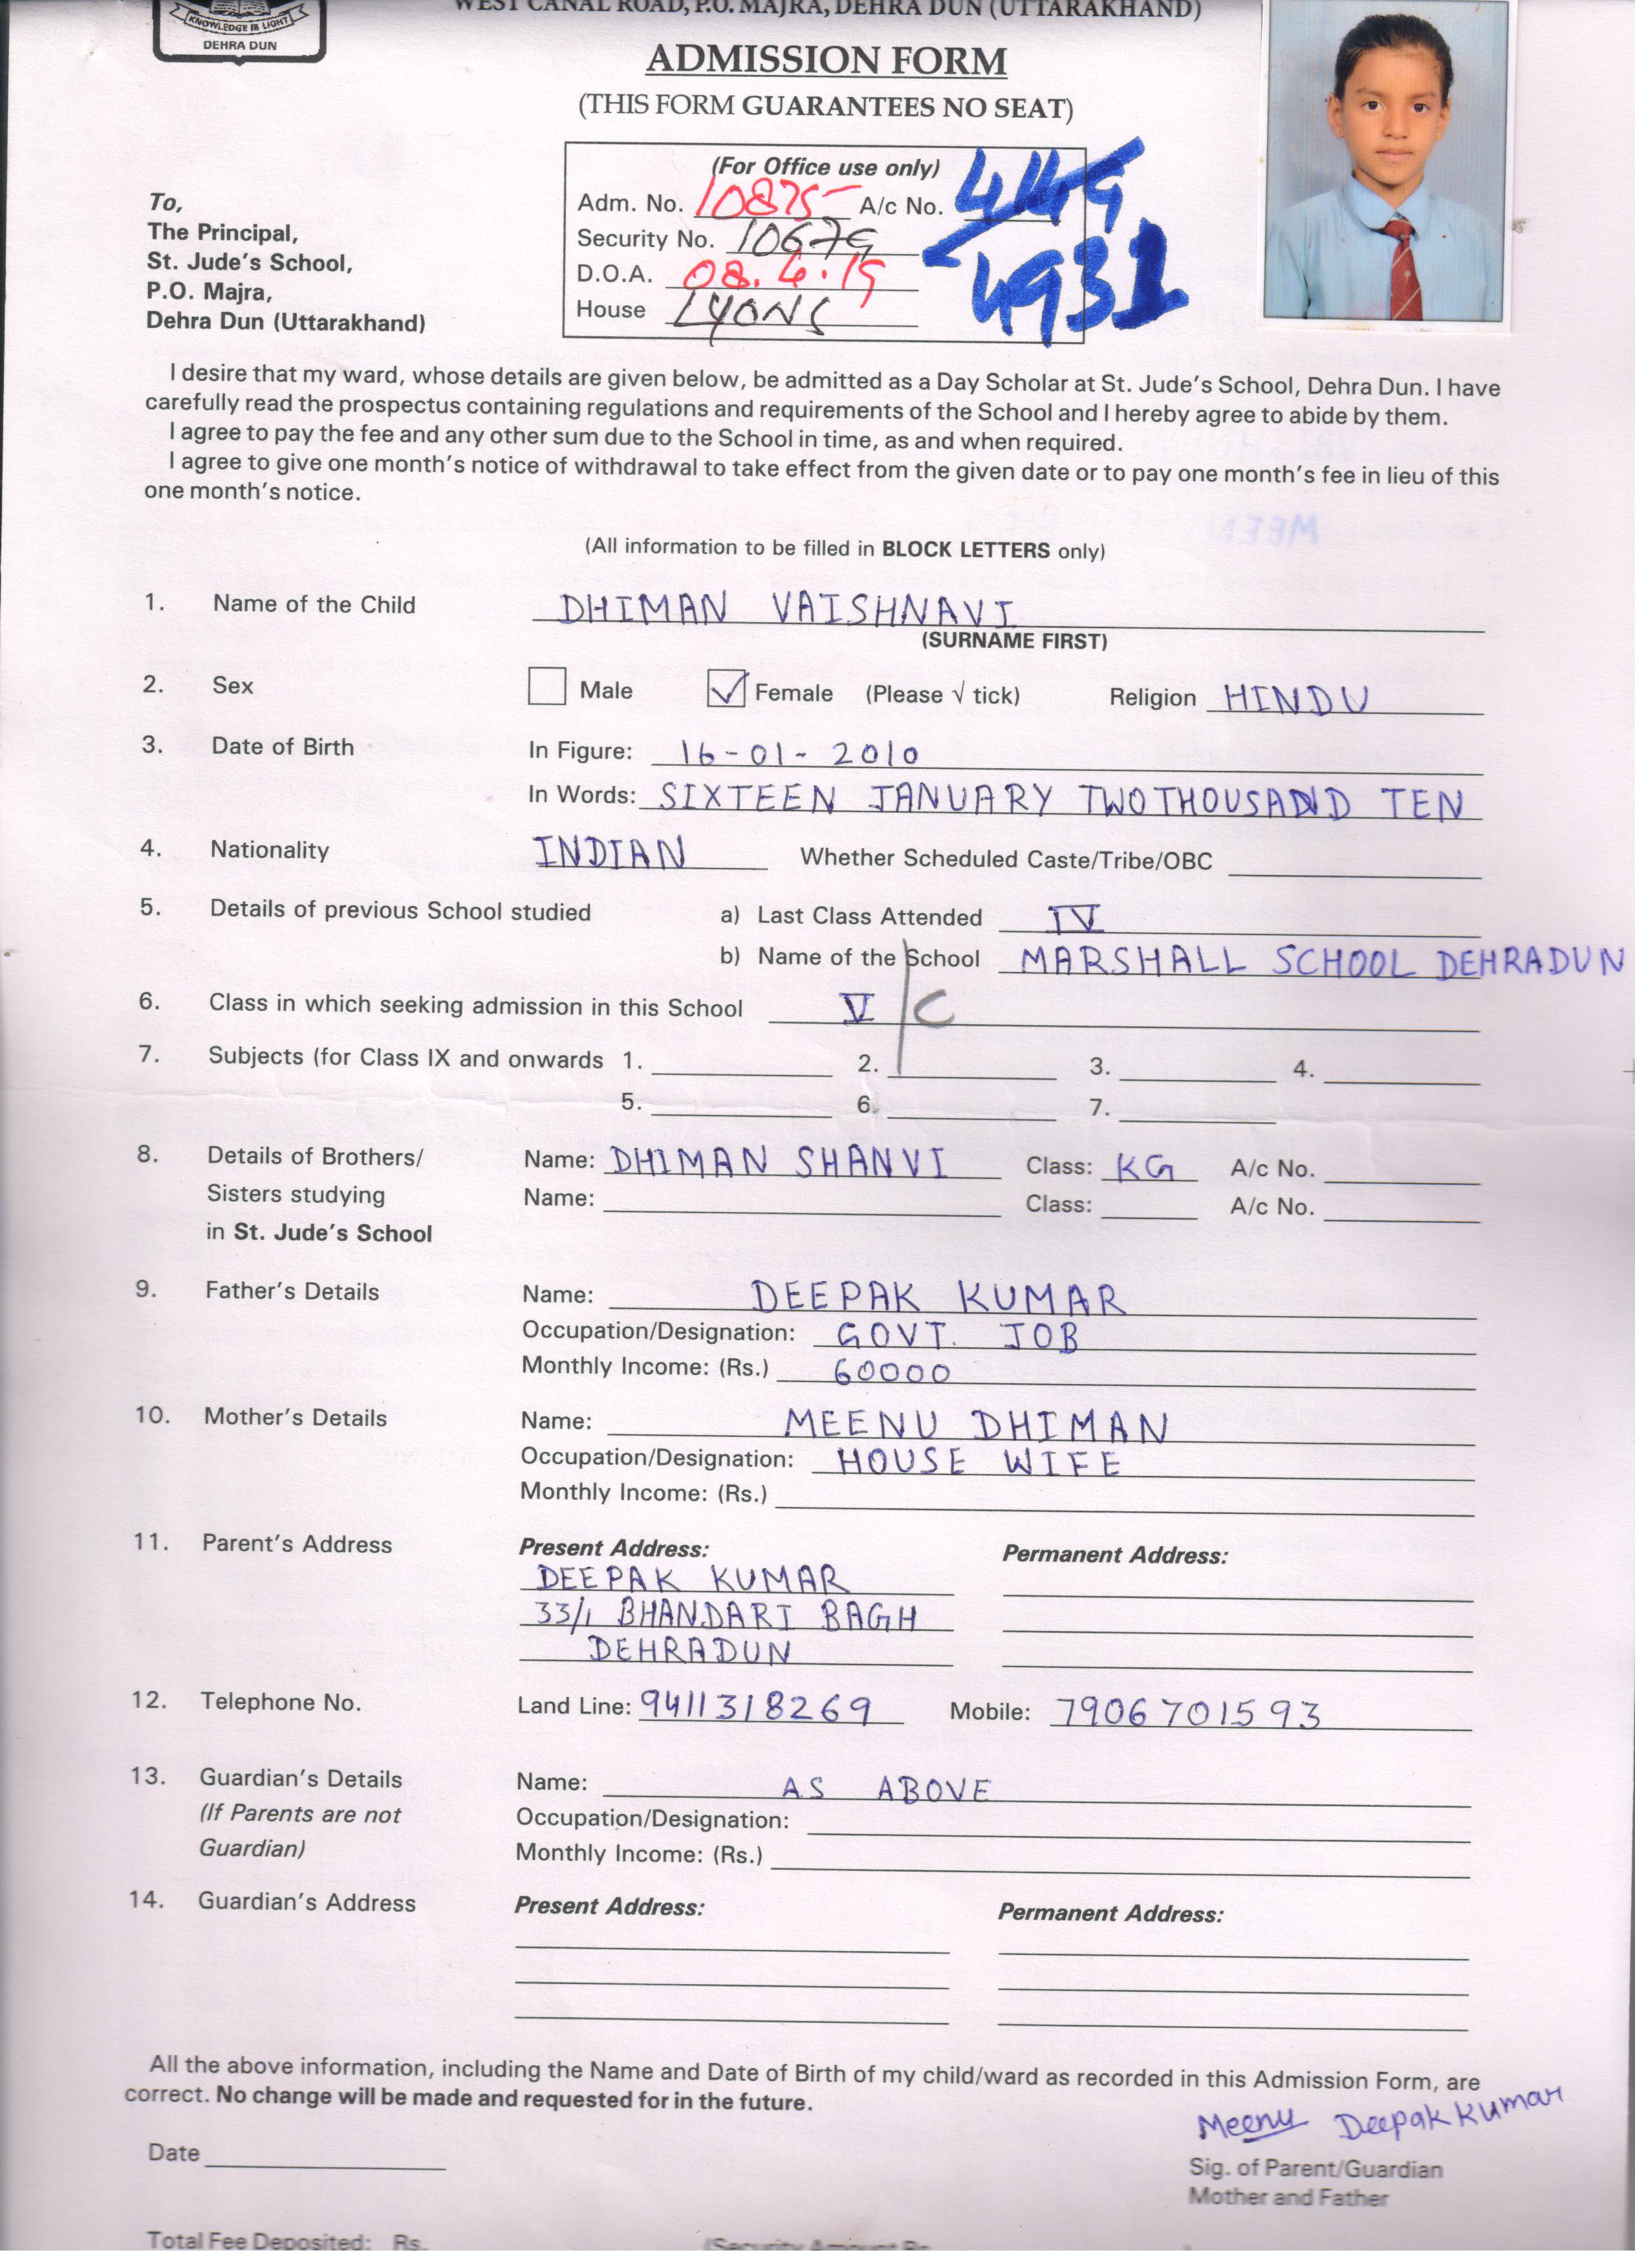 WEST CANAL ROAD, P.O. MAJRA, DEHRA DUN (UTTARAKHAND)
KNOWLEDGE IS LIGHT
DEHRA DUN
ADMISSION FORM
(THIS FORM GUARANTEES NO SEAT)
(For Office use only)
Adm. No. 10875 A/c No. 4149
4931
Security No. 10679
D.O.A. 08.4.19
House LYONS
To,
The Principal,
St. Jude's School,
P.O. Majra,
Dehra Dun (Uttarakhand)
I desire that my ward, whose details are given below, be admitted as a Day Scholar at St. Jude's School, Dehra Dun. I have
carefully read the prospectus containing regulations and requirements of the School and I hereby agree to abide by them.
I agree to pay the fee and any other sum due to the School in time, as and when required.
I agree to give one month's notice of withdrawal to take effect from the given date or to pay one month's fee in lieu of this
one month's notice.
(All information to be filled in BLOCK LETTERS only)
1. Name of the Child DHIMAN VAISHNAVI
(SURNAME FIRST)
2. Sex Male ✓ Female (Please √ tick) Religion HINDU
3. Date of Birth In Figure: 16-01-2010
In Words: SIXTEEN JANUARY TWO THOUSAND TEN
4. Nationality INDIAN Whether Scheduled Caste/Tribe/OBC
5. Details of previous School studied a) Last Class Attended IV
b) Name of the School MARSHALL SCHOOL DEHRADUN
6. Class in which seeking admission in this School V/C
7. Subjects (for Class IX and onwards 1. 2. 3. 4.
5. 6. 7.
8. Details of Brothers/ Name: DHIMAN SHANVI Class: KG A/c No.
Sisters studying Name: Class: A/c No.
in St. Jude's School
9. Father's Details Name: DEEPAK KUMAR
Occupation/Designation: GOVT. JOB
Monthly Income: (Rs.) 60000
10. Mother's Details Name: MEENU DHIMAN
Occupation/Designation: HOUSE WIFE
Monthly Income: (Rs.)
11. Parent's Address Present Address: Permanent Address:
DEEPAK KUMAR
33/1 BHANDARI BAGH
DEHRADUN
12. Telephone No. Land Line: 9411318269 Mobile: 7906701593
13. Guardian's Details Name: AS ABOVE
(If Parents are not Occupation/Designation:
Guardian) Monthly Income: (Rs.)
14. Guardian's Address Present Address: Permanent Address:
All the above information, including the Name and Date of Birth of my child/ward as recorded in this Admission Form, are
correct. No change will be made and requested for in the future.
Meenu Deepak Kumar
Date
Sig. of Parent/Guardian
Mother and Father
Total Fee Deposited: Rs. (Security Amount Rs.